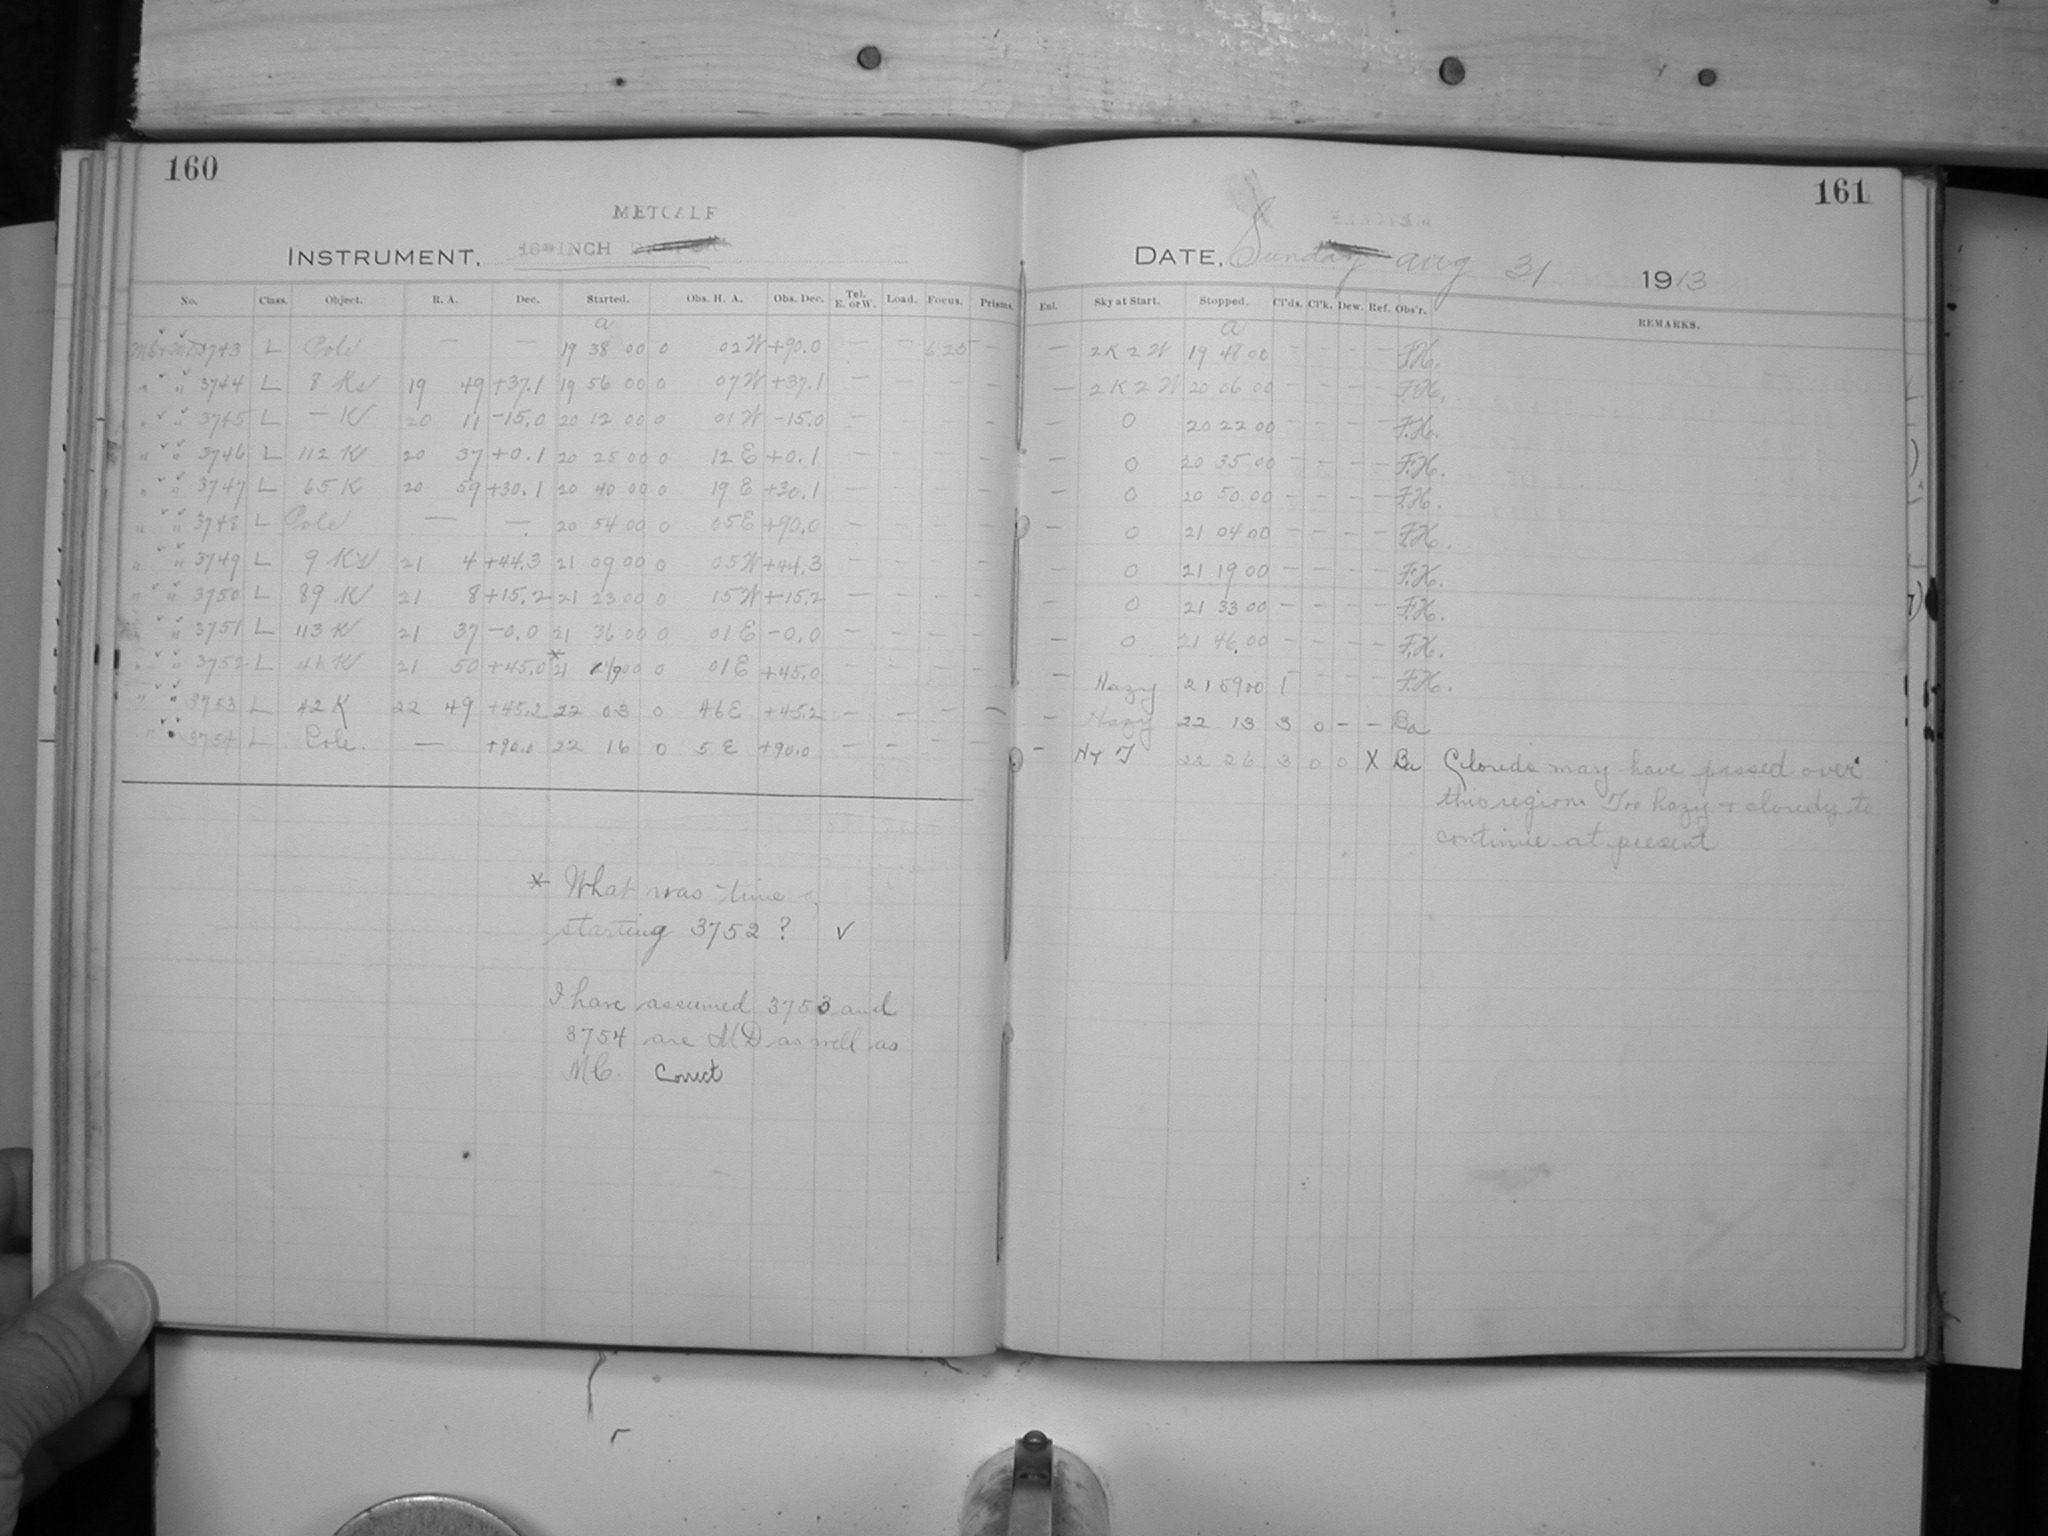 160
METCALF
INSTRUMENT. 16-INCH
No. Class. Object. R. A. Dec. Started. Obs. H. A. Obs. Dec. Tel. E. or W. Load. Focus. Prisms.
a
MC+MD 3743 L Pole — — 19 38 00 0 02 W +90.0 — — 6.25 —
" " 3744 L 8 Ks 19 49 +37.1 19 56 00 0 07 W +37.1 — — —
" " 3745 L — K 20 11 -15.0 20 12 00 0 01 W -15.0 — — — —
" " 3746 L 112 K 20 37 +0.1 20 25 00 0 12 E +0.1 — — — —
" " 3747 L 65 K 20 59 +30.1 20 40 00 0 19 E +30.1 — — — —
" " 3748 L Pole — — 20 54 00 0 05 E +90.0 — — — —
" " 3749 L 9 Ks 21 4 +44.3 21 09 00 0 05 W +44.3 — — — —
" " 3750 L 89 K 21 8 +15.2 21 23 00 0 15 W +15.2 — — — —
" " 3751 L 113 K 21 37 -0.0 21 36 00 0 01 E -0.0 — — — —
" " 3752 L 41 K 21 50 +45.0 * 21 4900 0 01 E +45.0 — — — —
" " 3753 L 42 K 22 49 +45.2 22 03 0 46 E +45.2 — — — —
" " 3754 L Pole. — +90.0 22 16 0 5 E +90.0 — — — —
* What was time of
starting 3752 ? ✓
I have assumed 3753 and
3754 are MD as well as
MC. Correct
161
DATE, Sunday Aug 31 1913
Enl. Sky at Start. Stopped. Cl'ds. Cl'k. Dew. Ref. Obs'r. REMARKS.
a
— 2 K 2 W 19 48 00 — — — — F.H.
— 2 K 2 W 20 06 00 — — — — F.H.
— 0 20 22 00 — — — — F.H.
— 0 20 35 00 — — — — F.H.
— 0 20 50 00 — — — — F.H.
— 0 21 04 00 — — — — F.H.
— 0 21 19 00 — — — — F.H.
— 0 21 33 00 — — — — F.H.
— 0 21 46 00 — — — — F.H.
— Hazy 21 59 00 — — — F.H.
— Hazy 22 13 3 0 — — Ba
— Hy 22 26 3 0 0 X Ba Clouds may have passed over
this region. Too hazy + cloudy to
continue at present